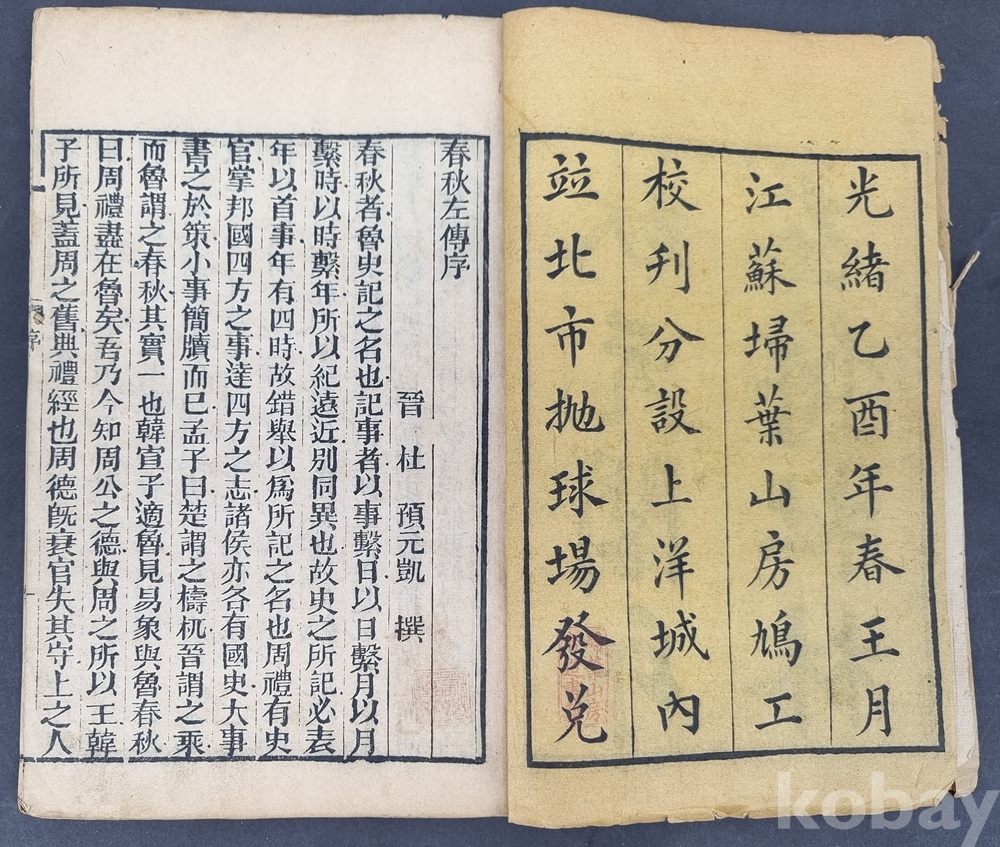 光緒乙酉年春王月
江蘇埽葉山房鳩工
校刋分設上洋城內
竝北市拋球場發兌
春秋左傳序
晉 杜 預元凱 撰
春秋者魯史記之名也記事者以事繫日以日繫月以月
繫時以時繫年所以紀遠近別同異也故史之所記必表
年以首事年有四時故錯舉以爲所記之名也周禮有史
官掌邦國四方之事達四方之志諸侯亦各有國史大事
書之於策小事簡牘而已孟子曰楚謂之檮杌晉謂之乘
而魯謂之春秋其實一也韓宣子適魯見易象與魯春秋
曰周禮盡在魯矣吾乃今知周公之德與周之所以王韓
子所見蓋周之舊典禮經也周德旣衰官失其守上之人
序
kobay